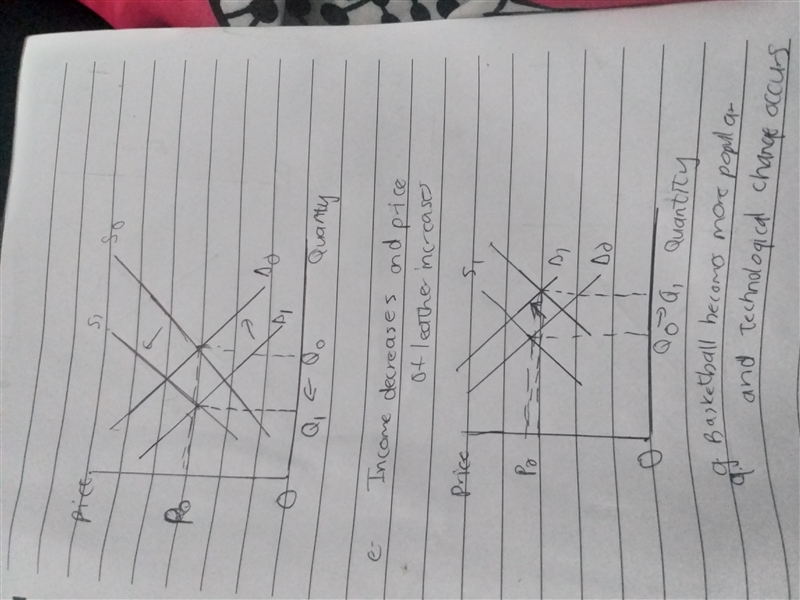 Price
S1
S0
P0
D0
D1
0
Q1 ← Q0
Quantity
e- Income decreases and price
of leather increases
Price
S1
P0
D1
D0
0
Q0 → Q1
Quantity
g Basketball becomes more popular
and technological change occurs